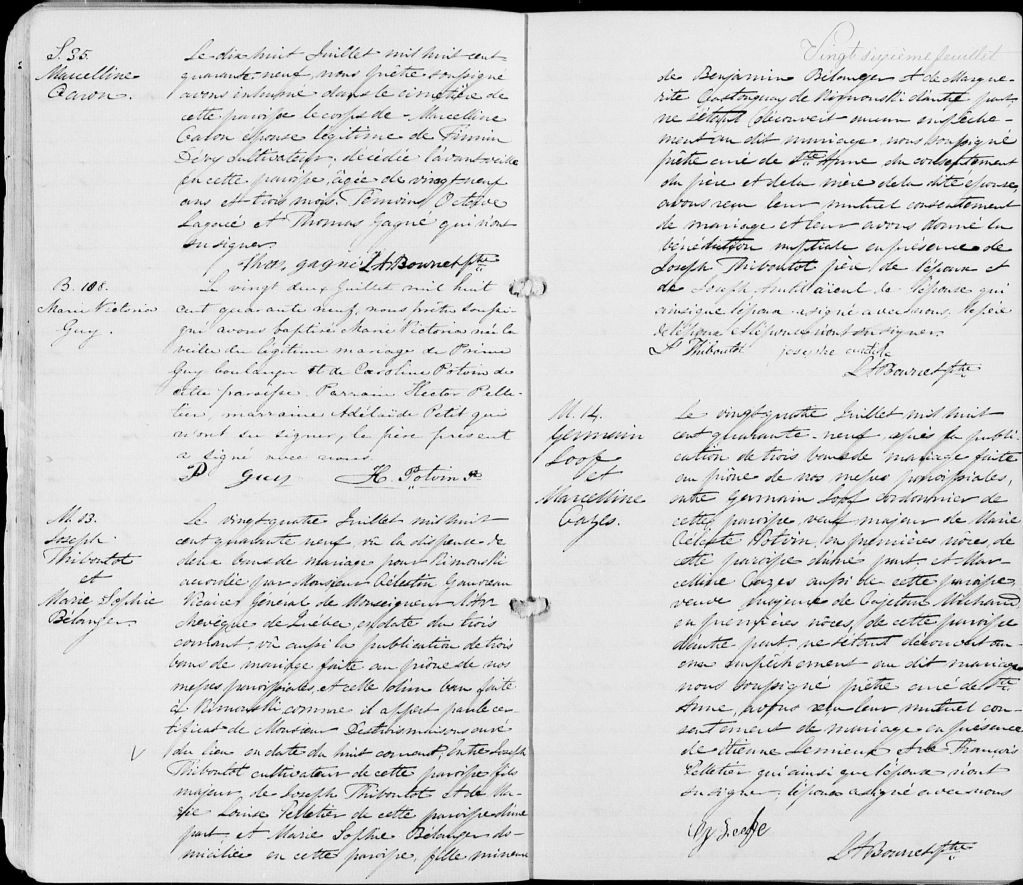 S. 35.
Marcelline
Caron.
Le dix huit Juillet mil huit cent
quarante-neuf, nous prêtre soussigné
avons inhumé dans le cimetière de
cette paroisse le corps de Marcelline
Caron épouse légitime de Firmin
Dévy cultivateur, décédée l'avant veille
en cette paroisse, âgée de vingt neuf
ans et trois mois. Témoins Octave
Lagacé et Thomas Gagné qui n'ont
su signer.
Thos. gagné L A Bourret Ptre
B. 108.
Marie Victoria
Guy.
Le vingt deux Juillet mil huit
cent quarante neuf, nous prêtre soussi-
gné avons baptisé Marie Victoria née la
veille du légitime mariage de Prime
Guy boulanger et de Caroline Potvin de
cette paroisse. Parrain Hector Pelle-
tier, marraine Adélaïde Petit qui
n'ont su signer, le père présent
a signé avec nous.
P Guy H. Potvin Pr
M. 13.
Joseph
Thiboutot
et
Marie Sophie
Bélanger
Le vingt quatre Juillet mil huit
cent quarante neuf, vû la dispense de
deux bans de mariage pour Rimouski
accordée par Monsieur Célestin Gauvreau
Vicaire Général de Monseigneur l'Ar-
chevêque de Québec en date du trois
courant, vû aussi la publication de trois
bans de mariage faite au prône de nos
messes paroissiales, et celle d'un ban faite
à Rimouski comme il appert par le cer-
tificat de Monsieur Destroismaisons curé
du lieu en date du huit courant, entre Joseph
Thiboutot cultivateur de cette paroisse, fils
majeur de Joseph Thiboutot et de Ma-
rie Louise Pelletier de cette paroisse d'une
part, et Marie Sophie Bélanger do-
miciliée en cette paroisse, fille mineure
Vingt sixième feuillet
de Benjamin Bélanger et de Margue-
rite Castonguay de Rimouski d'autre part,
ne s'étant découvert aucun empêche-
ment au dit mariage nous soussigné
prêtre curé de Ste Anne du consentement
du père et de la mère de la dite épouse,
avons reçu leur mutuel consentement
de mariage et leur avons donné la
bénédiction nuptiale en présence de
Joseph Thiboutot père de l'époux et
de Joseph aïeul de l'épouse qui
ainsi que l'époux a signé avec nous. Le père
de l'époux et l'épouse n'ont su signer.
Js Thiboutot josephe
L A Bourret Ptre
M. 14.
Germain
Loof
et
Marcelline
Cazes.
Le vingt quatre Juillet mil huit
cent quarante-neuf, après la publi-
cation de trois bans de mariage faite
au prône de nos messes paroissiales,
entre Germain Loof cordonnier de
cette paroisse, veuf majeur de Marie
Céleste Potvin, en premières noces, de
cette paroisse d'une part, et Mar-
celline Cazes aussi de cette paroisse,
veuve majeure de Cajetan Michaud,
en premières noces, de cette paroisse
d'autre part, ne s'étant découvert au-
cun empêchement au dit mariage
nous soussigné prêtre curé de Ste
Anne, avons reçu leur mutuel con-
sentement de mariage en présence
de Etienne Lemieux et de François
Pelletier qui ainsi que l'époux n'ont
su signer, l'époux a signé avec nous
L A Bourret Ptre